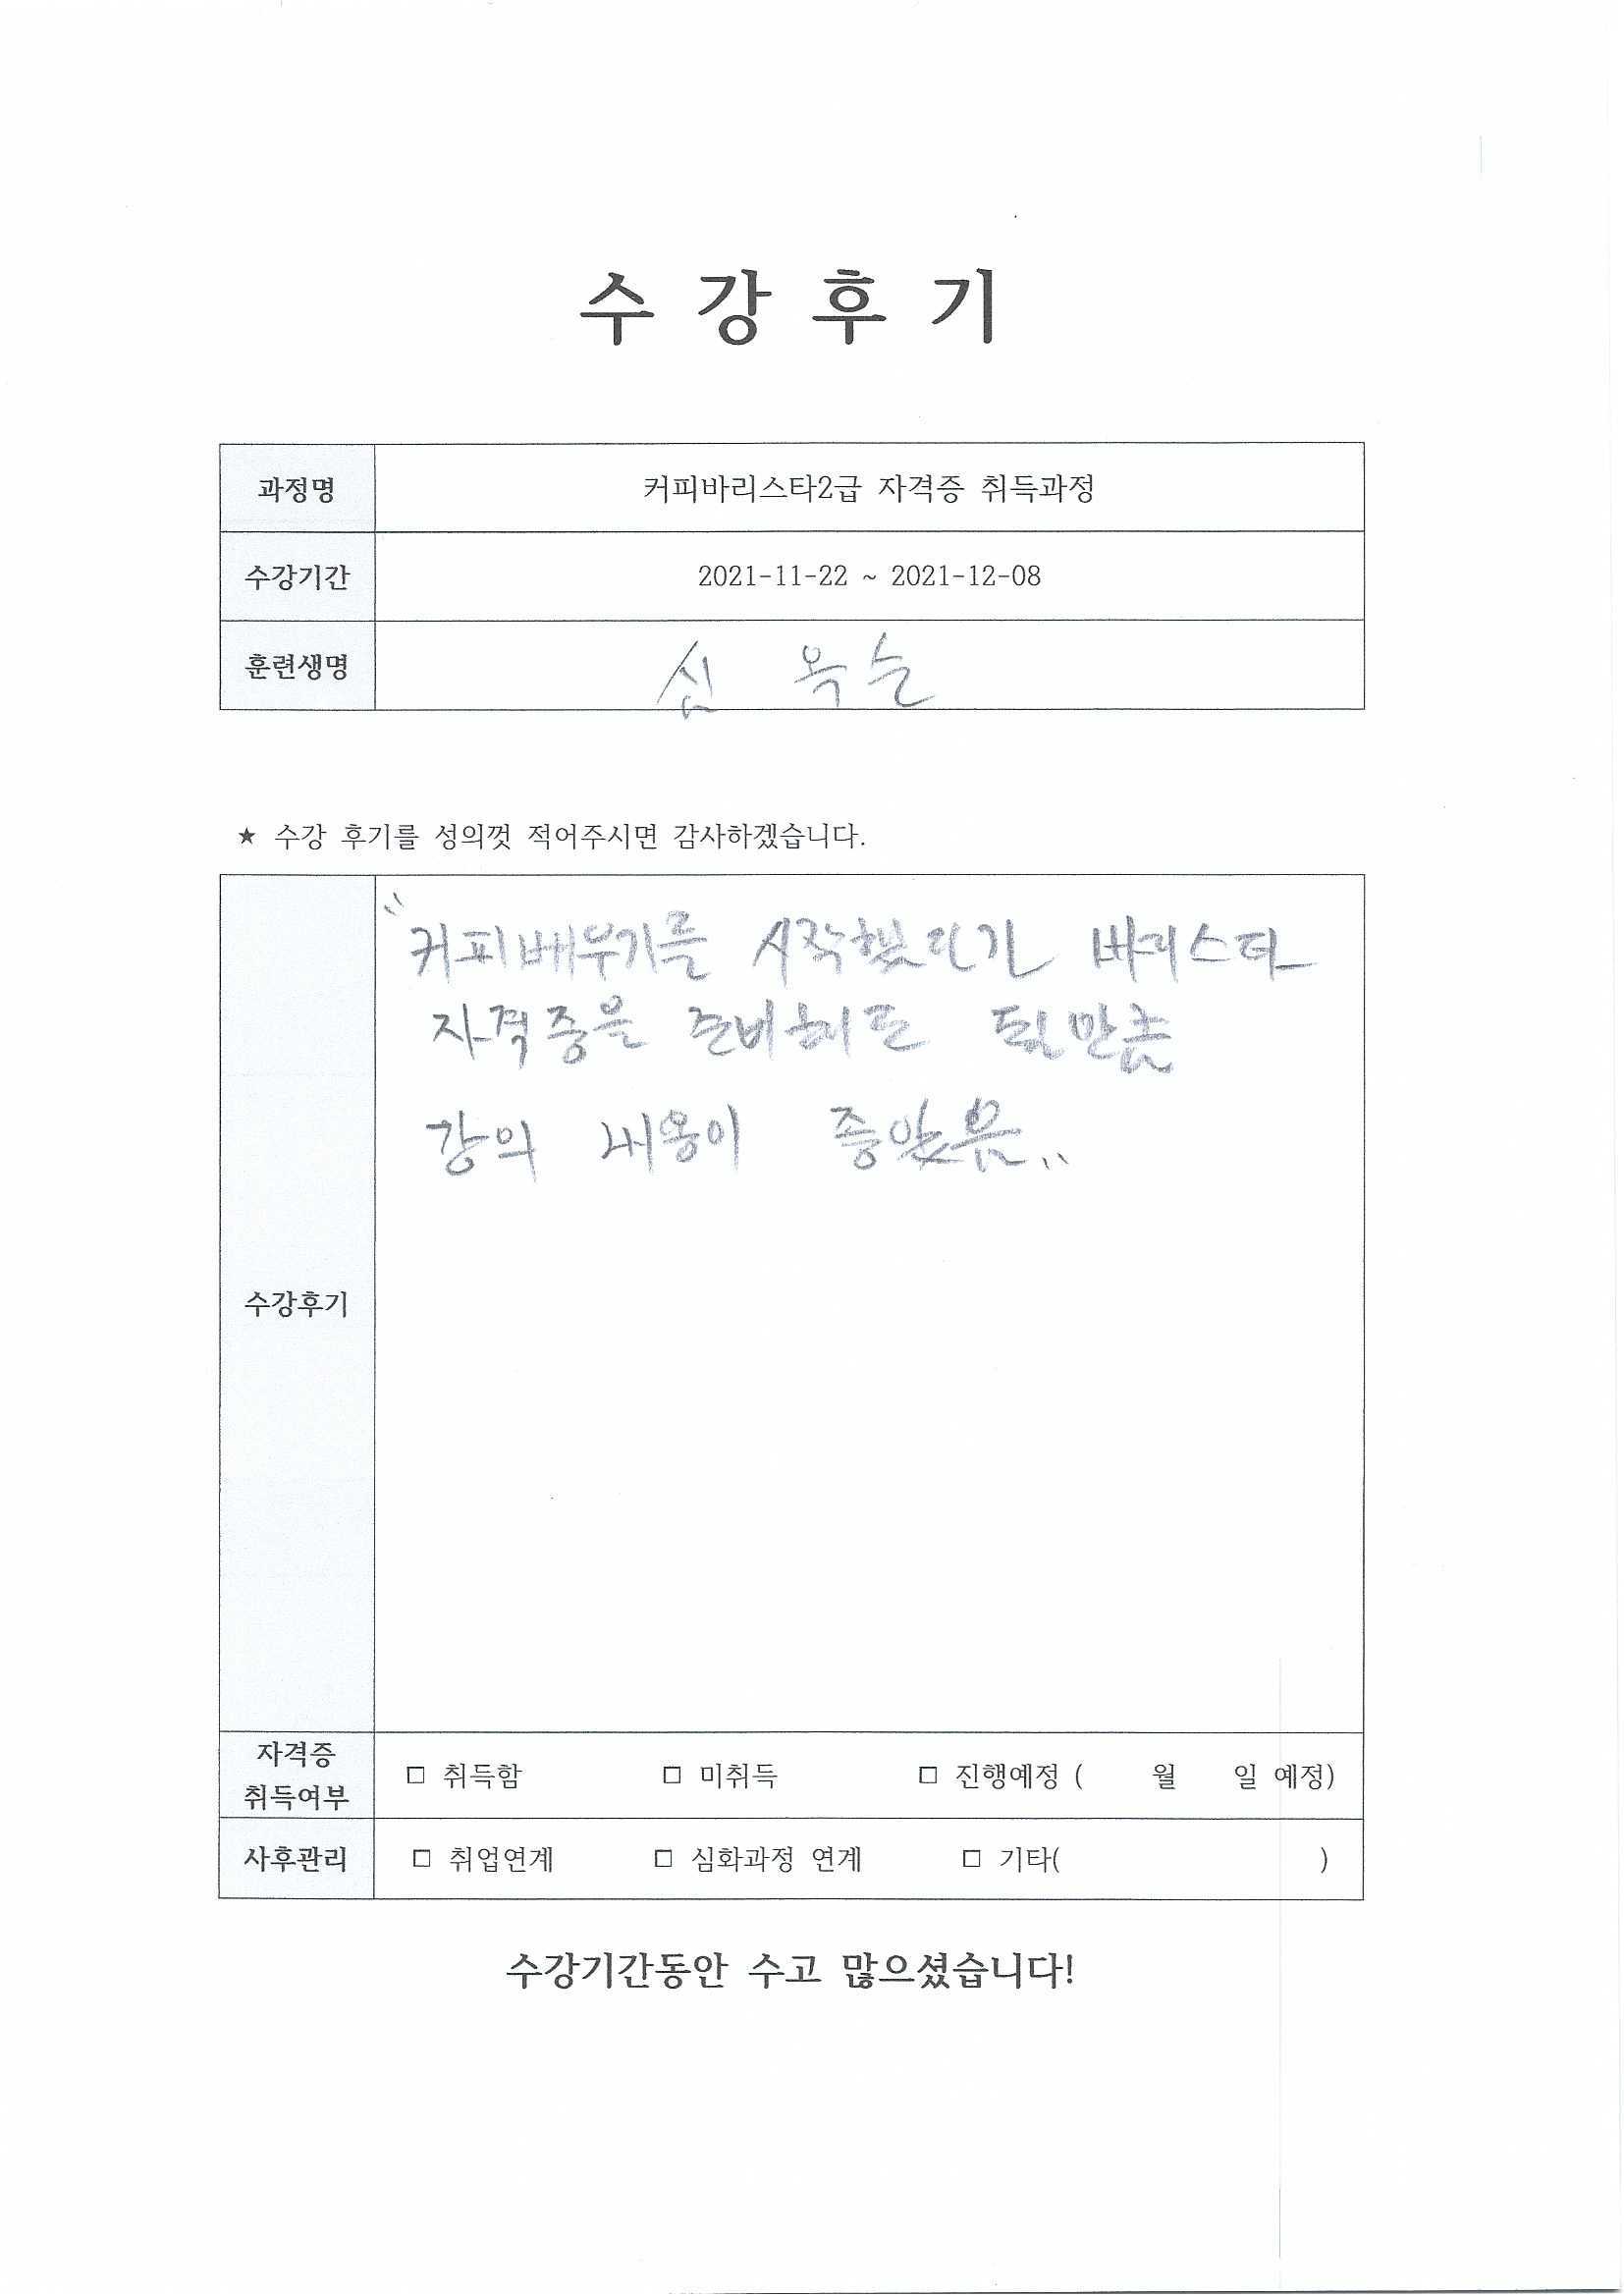 수 강 후 기
과정명 커피바리스타2급 자격증 취득과정
수강기간 2021-11-22 ~ 2021-12-08
훈련생명 심 옥순
★ 수강 후기를 성의껏 적어주시면 감사하겠습니다.
"커피배우기를 시작했다가 바리스타
자격증을 준비해도 될만큼
강의 내용이 좋았음"
수강후기
자격증
취득여부
□ 취득함 □ 미취득 □ 진행예정 ( 월 일 예정)
사후관리 □ 취업연계 □ 심화과정 연계 □ 기타( )
수강기간동안 수고 많으셨습니다!